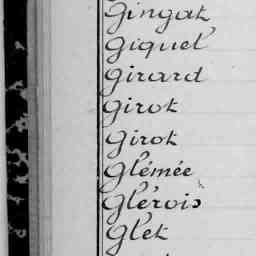 Gingat
Giquel
Girard
Girot
Girot
Glémée
Glérois
Glet